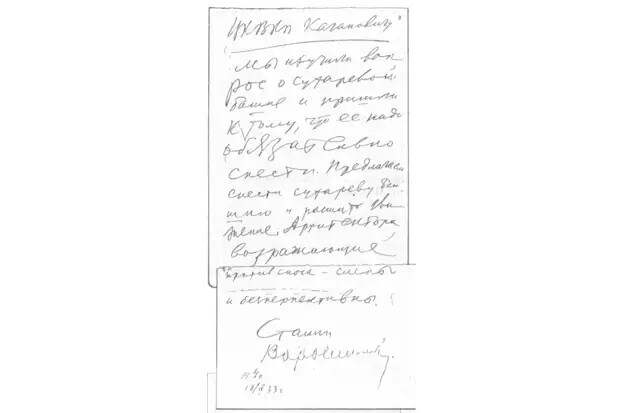 ЦКВКП Кагановичу
Мы изучили воп
рос о Сухаревой
башне и пришли
к тому, что ее надо
обязательно
снести. Предлагаем
снести сухареву баш
ню и расшить дви
жение. Архитектора
возражающие
против сноса – слепы
и бесперспективны.
Сталин
Ворошилов.
18/IX 33 г